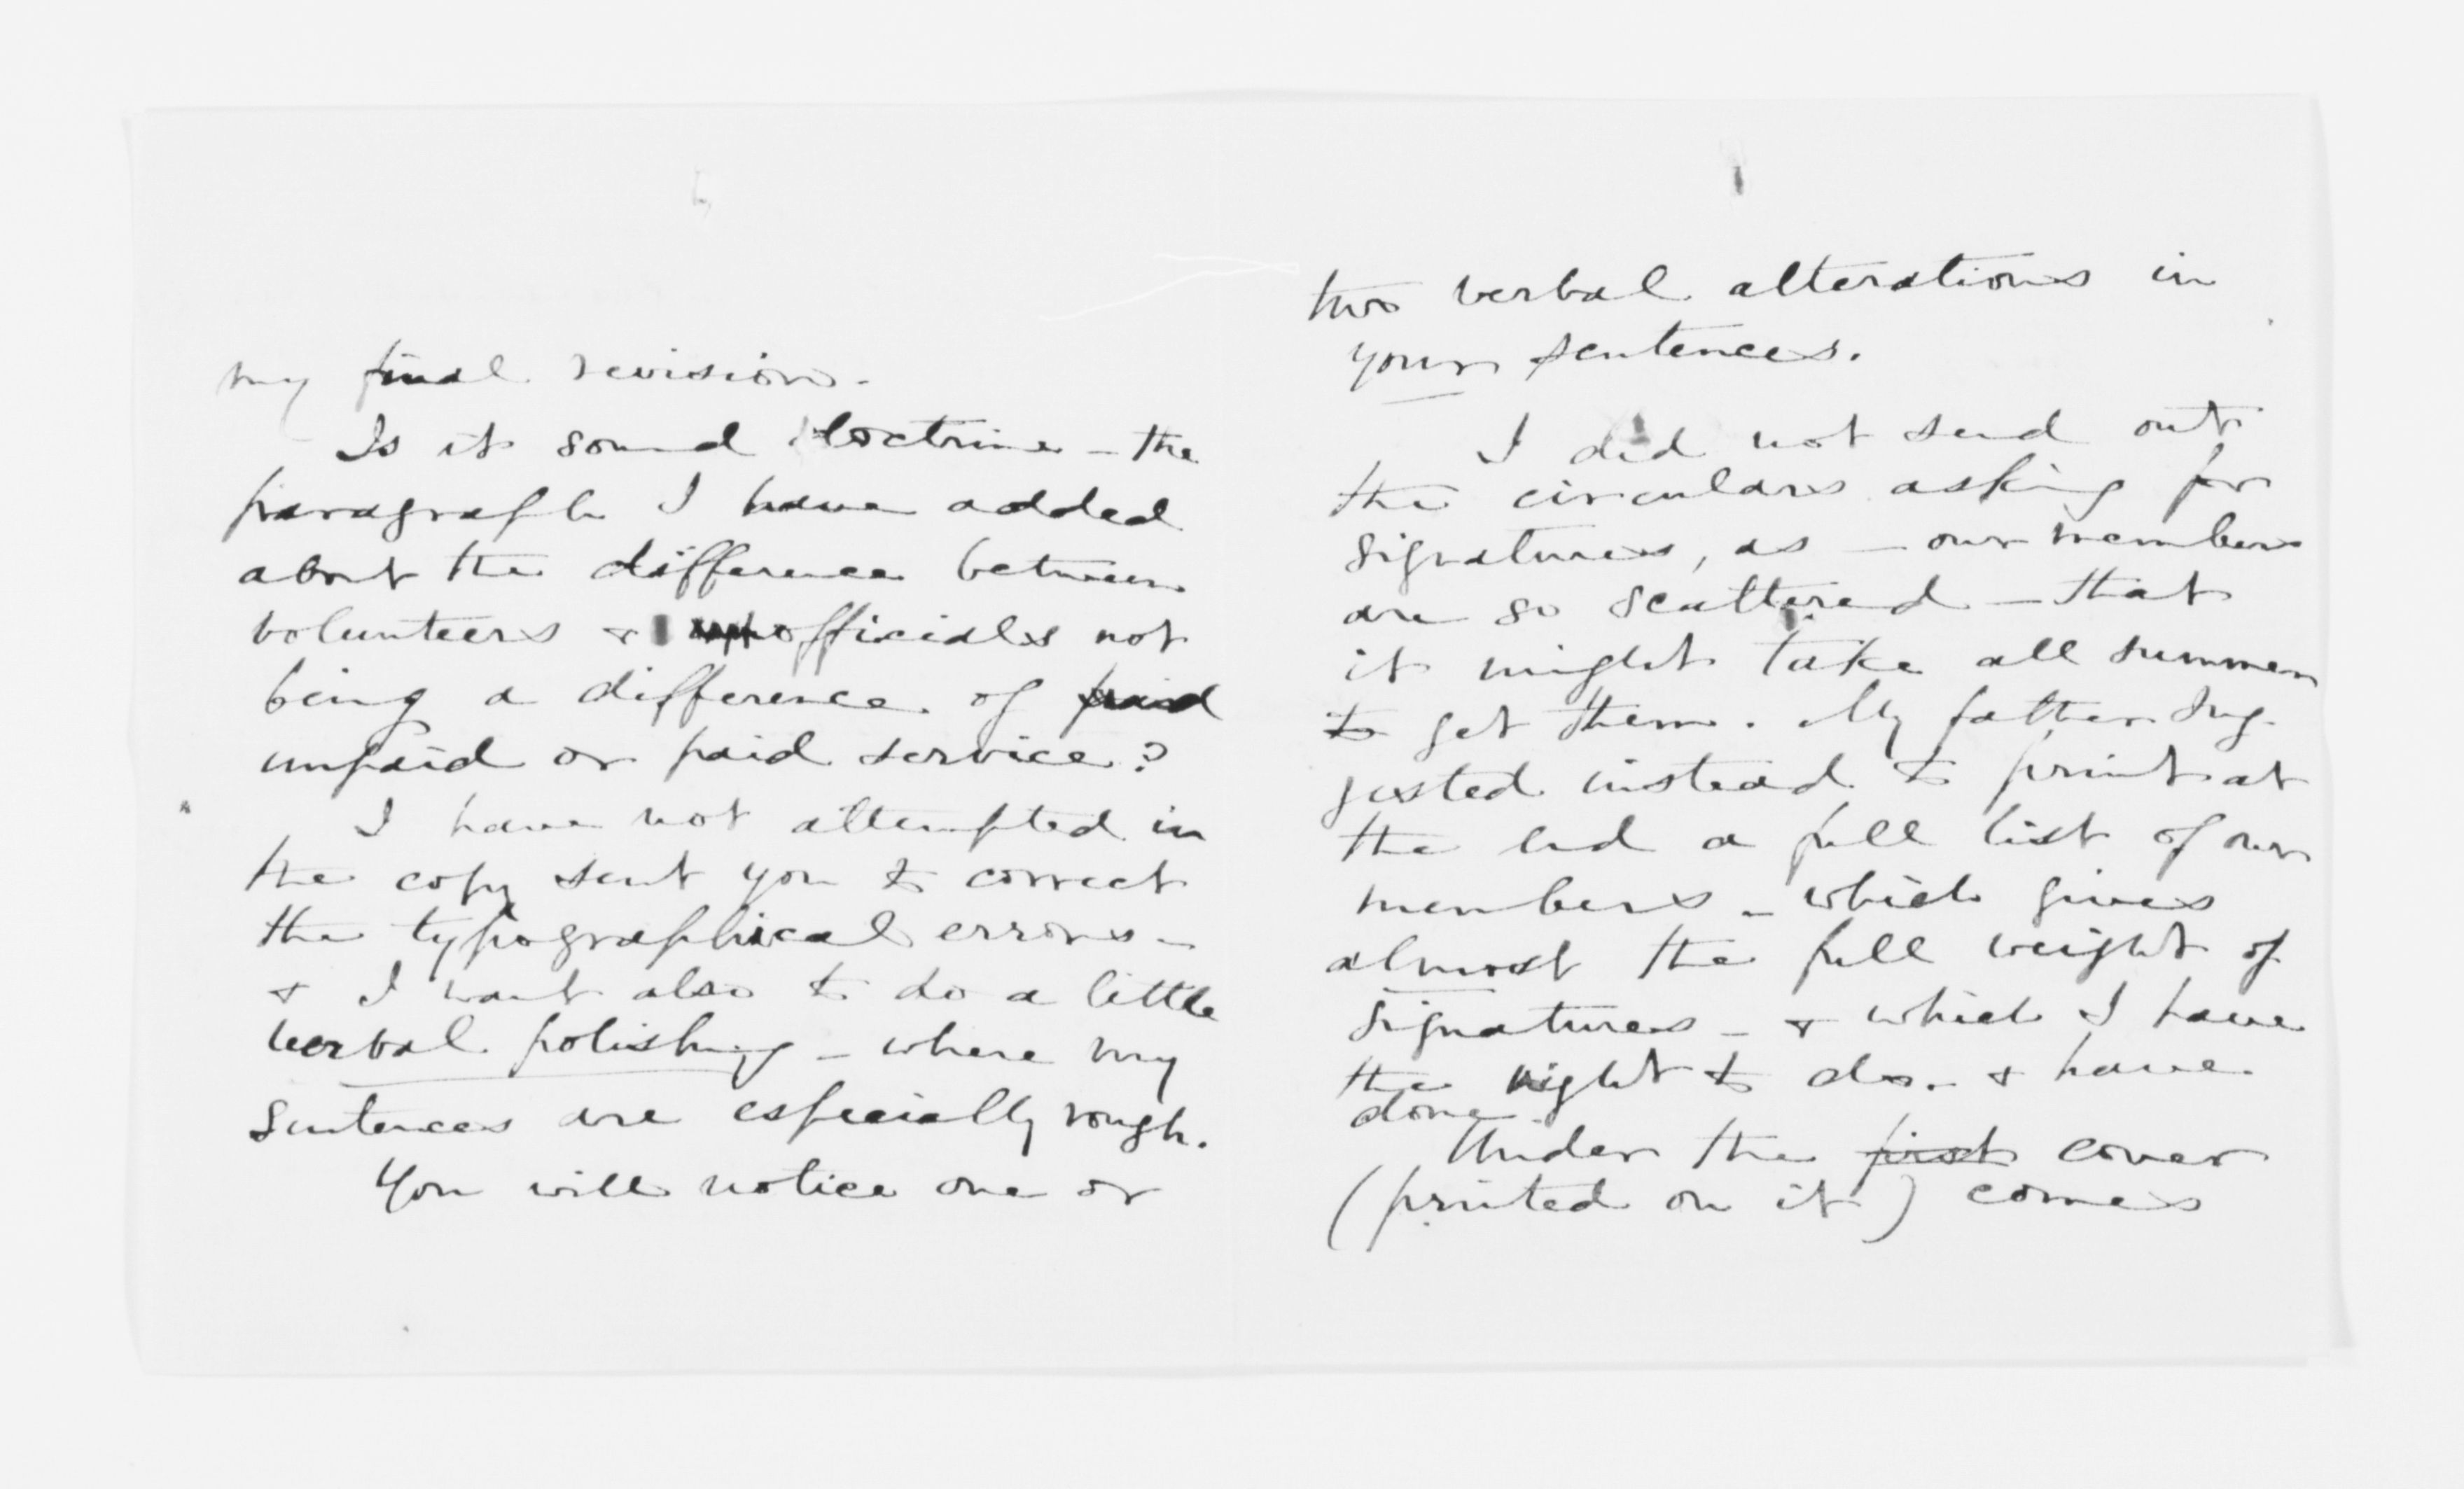 my final revision.
Is it sound doctrine - the
paragraph I have added
about the difference between
volunteers & officials not
being a difference of paid
unpaid or paid service?
I have not attempted in
the copy sent you to correct
the typographical errors -
& I want also to do a little
verbal polishing - where my
sentences are especially rough.
You will notice one or
two verbal alterations in
your sentences.
I did not send out
the circulars asking for
signatures, as - our members
are so scattered - that
it might take all summer
to get them. My father sug-
gested instead to print at
the end a full list of our
members - which gives
almost the full weight of
signatures - & which I have
the right to do - & have
done.
Under the first cover
(printed on it) comes